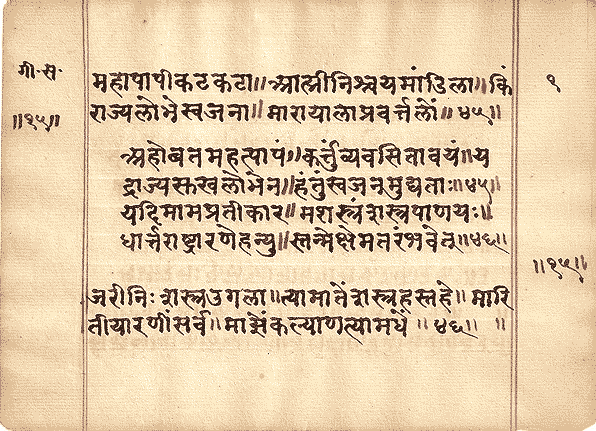 गी॰स॰
॥१५॥
महापापीकटकटा॥ आम्ही निश्चय मांडिला॥ किं
राज्यलोभेस्वजना॥ मारायाला प्रवर्त्तलों॥४५॥
अहोबतमहत्पापं॥कर्त्तुंव्यवसितावयं॥य
द्राज्यसुखलोभेन॥हंतुंस्वजनमुद्यताः॥४५॥
यदिमामप्रतीकार॥मशस्त्रंशस्त्रपाणयः॥
धार्त्तराष्ट्रारणेहन्यु॥स्तन्मेक्षेमतरंभवेत्॥४६॥
॥१५॥
जरीनिःशस्त्रउगला॥त्यामातेंशस्त्रहस्तहे॥मारि
तीयारणींसर्व॥माझेंकल्याणत्यामधें॥४६॥ ॥